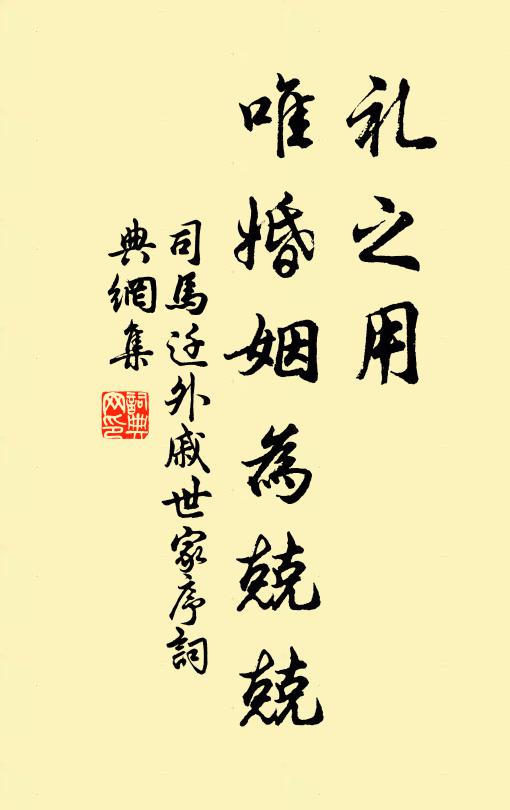 礼之用
唯婚姻為兢兢
司馬迁外戚世家序詞
典網集
詞典
网印